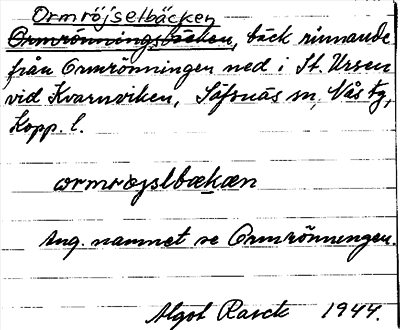 Ormröjselbäcken
Ormrönningsbäcken, bäck rinnande
från Ormrönningen ned i St. Ursen
vid Kvarnviken, Säfsnäs sn, Nås tg,
Kopp. l.
ormrøjslbækæn
Ang. namnet se Ormrönningen.
Algot Rasck 1944.